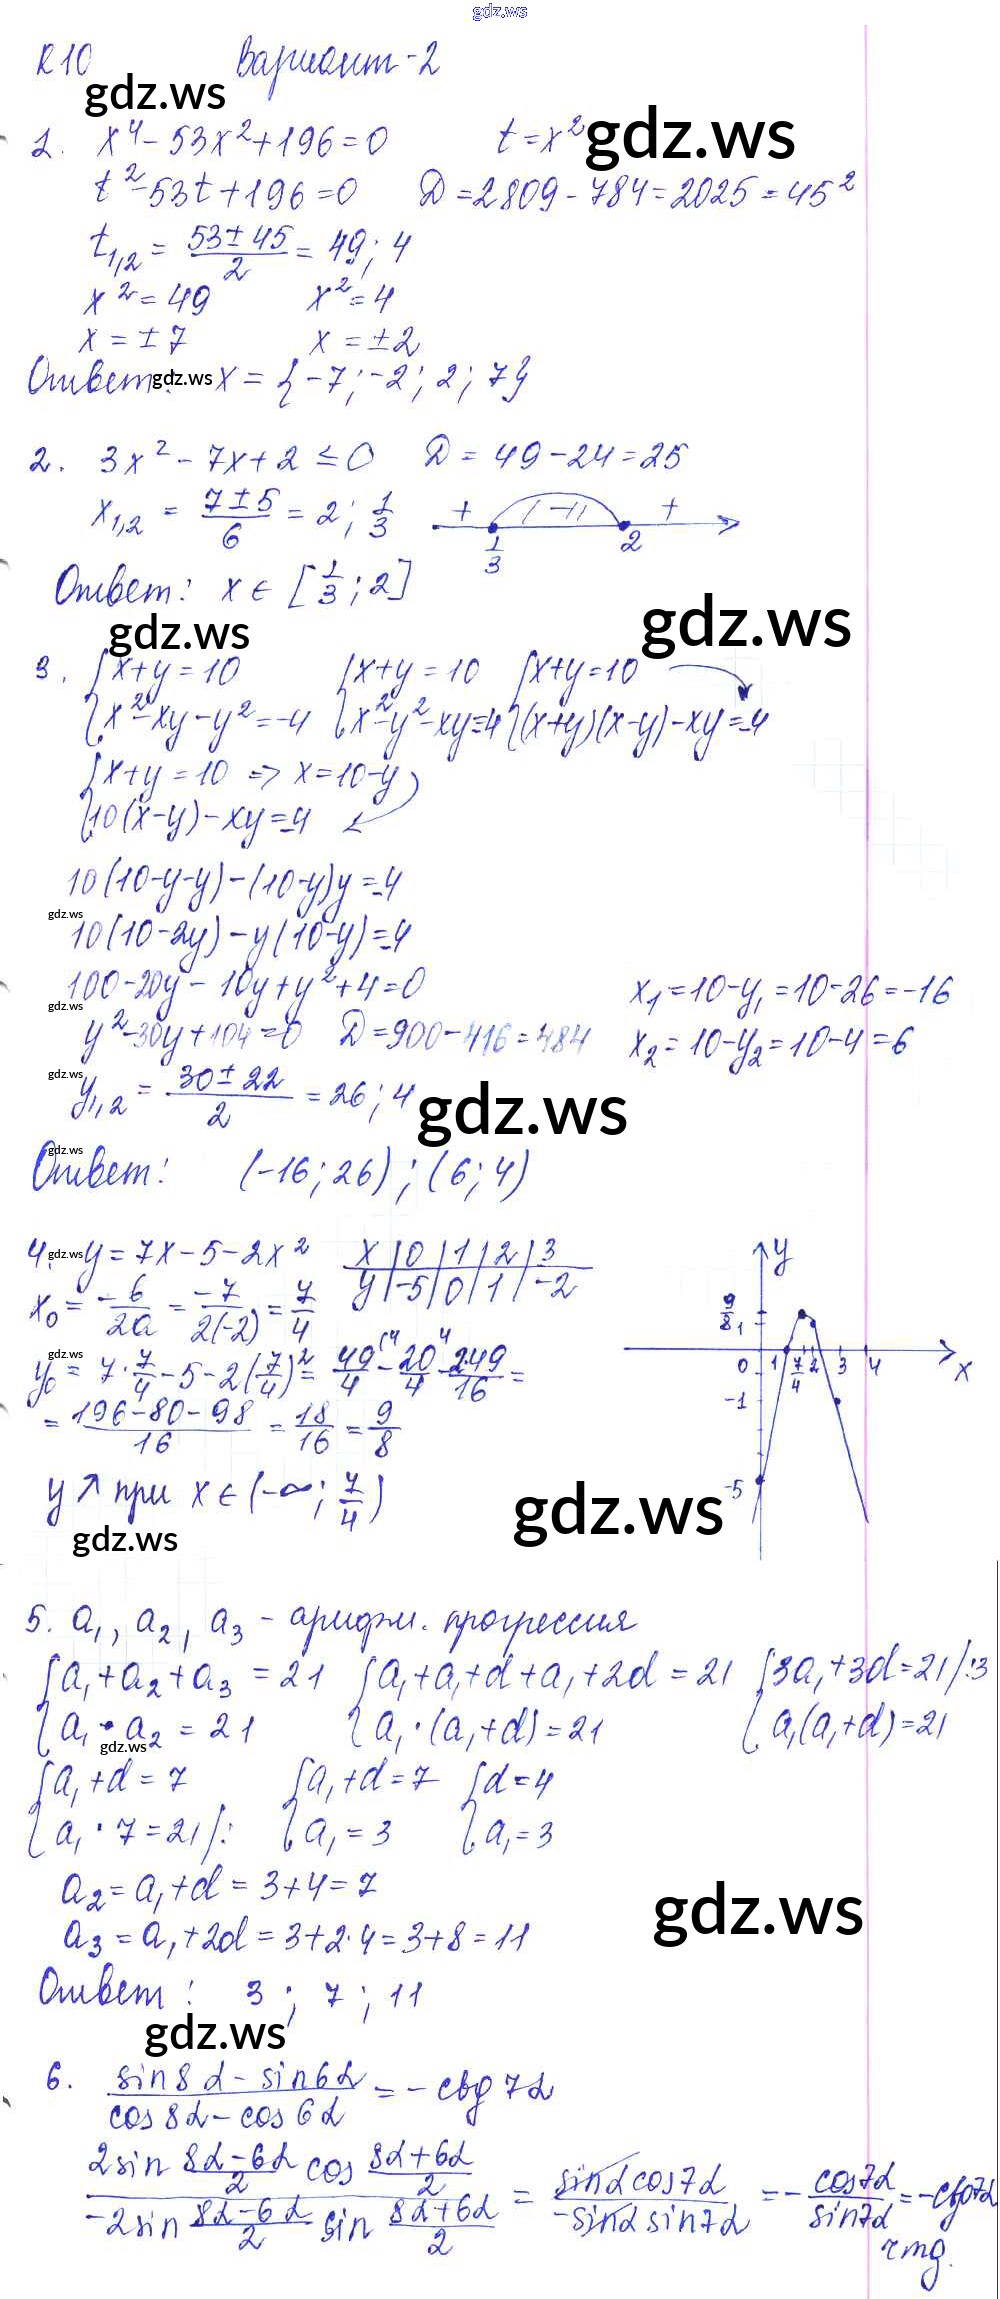 gdz.ws
К10 Вариант-2
gdz.ws
1. x⁴ - 53x² + 196 = 0 t = x² gdz.ws
t² - 53t + 196 = 0 D = 2809 - 784 = 2025 = 45²
t₁,₂ = (53 ± 45)/2 = 49; 4
x² = 49 x² = 4
x = ±7 x = ±2
Ответ: gdz.ws x = {-7; -2; 2; 7}
2. 3x² - 7x + 2 ≤ 0 D = 49 - 24 = 25
x₁,₂ = (7 ± 5)/6 = 2; 1/3 + - + 1/3 2
Ответ: x ∈ [1/3; 2]
gdz.ws gdz.ws
3. {x + y = 10 {x + y = 10 {x + y = 10
{x² - xy - y² = -4 {x² - y² - xy = -4 {(x + y)(x - y) - xy = -4
{x + y = 10 => x = 10 - y
{10(x - y) - xy = -4
10(10 - y - y) - (10 - y)y = -4
gdz.ws
10(10 - 2y) - y(10 - y) = -4
100 - 20y - 10y + y² + 4 = 0 x₁ = 10 - y₁ = 10 - 26 = -16
gdz.ws
y² - 30y + 104 = 0 D = 900 - 416 = 484 x₂ = 10 - y₂ = 10 - 4 = 6
gdz.ws
y₁,₂ = (30 ± 22)/2 = 26; 4 gdz.ws
gdz.ws
Ответ: (-16; 26); (6; 4)
4. gdz.ws y = 7x - 5 - 2x² x | 0 | 1 | 2 | 3
y | -5 | 0 | 1 | -2
x₀ = -b/2a = -7/2(-2) = 7/4
gdz.ws
y₀ = 7 · 7/4 - 5 - 2(7/4)² = 49/4 (⁴ - 20/4 ⁴ - 2·49/16 =
= (196 - 80 - 98)/16 = 18/16 = 9/8
y ↗ при x ∈ (-∞; 7/4)
y 9/8 1 0 1 7/4 2 3 4 x -1 -5
gdz.ws gdz.ws
5. a₁, a₂, a₃ - арифм. прогрессия
{a₁ + a₂ + a₃ = 21 {a₁ + a₁ + d + a₁ + 2d = 21 {3a₁ + 3d = 21 /:3
{a₁ · a₂ = 21 {a₁ · (a₁ + d) = 21 {a₁(a₁ + d) = 21
gdz.ws
{a₁ + d = 7 {a₁ + d = 7 {d = 4
{a₁ · 7 = 21 /: {a₁ = 3 {a₁ = 3
a₂ = a₁ + d = 3 + 4 = 7
gdz.ws
a₃ = a₁ + 2d = 3 + 2·4 = 3 + 8 = 11
Ответ: 3; 7; 11
gdz.ws
6. (sin8α - sin6α)/(cos8α - cos6α) = -ctg7α
(2sin (8α - 6α)/2 cos (8α + 6α)/2)/(-2sin (8α - 6α)/2 sin (8α + 6α)/2) = (sinα cos7α)/(-sinα sin7α) = -cos7α/sin7α = -ctg7α
чтд.